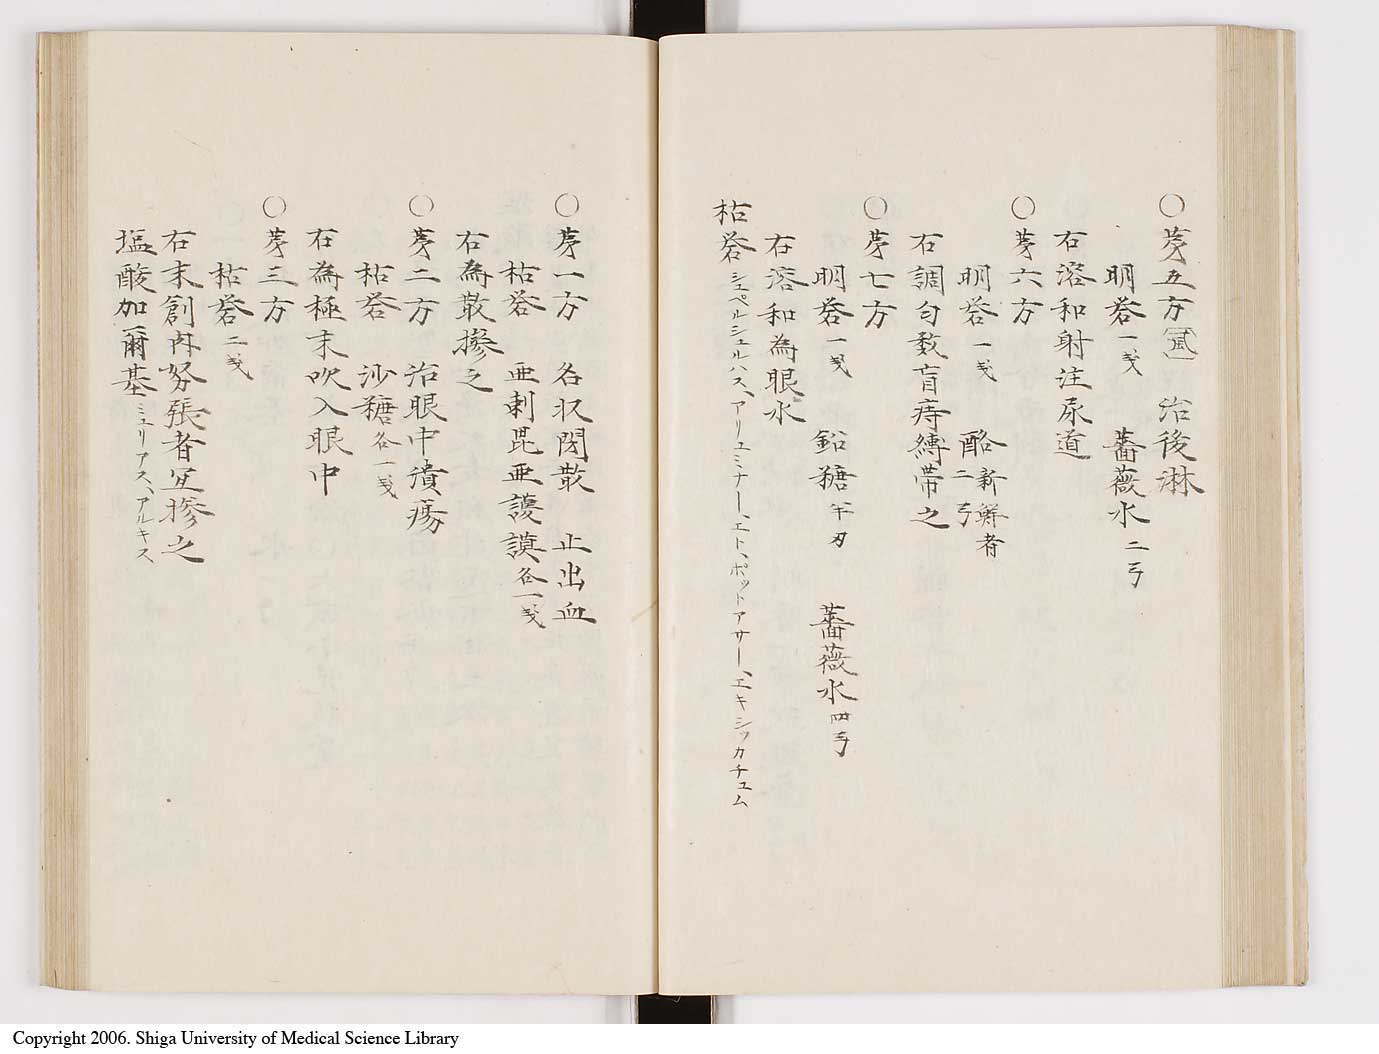 ○第五方 㞮 治後淋
明礬一戔 薔薇水二弓
右溶和射注尿道
○第六方
明礬一戔 酪新鮮者二弓
右調匀敷盲痔縛帯之
○第七方
明礬一戔 鉛糖半刃 薔薇水四弓
右溶和為眼水
枯礬シュペルシュルハス、アリュミナー、エト、ポットアサー、エキシッカチュム
○第一方 名収閉散 止出血
枯礬 亜剌毘亜護謨各一戔
右為散摻之
○第二方 治眼中潰瘍
枯礬 沙糖各一戔
右為極末吹入眼中
○第三方
枯礬二戔
右末創内努張者宜摻之
塩酸加爾基ミュリアス、アルキス
Copyright 2006. Shiga University of Medical Science Library